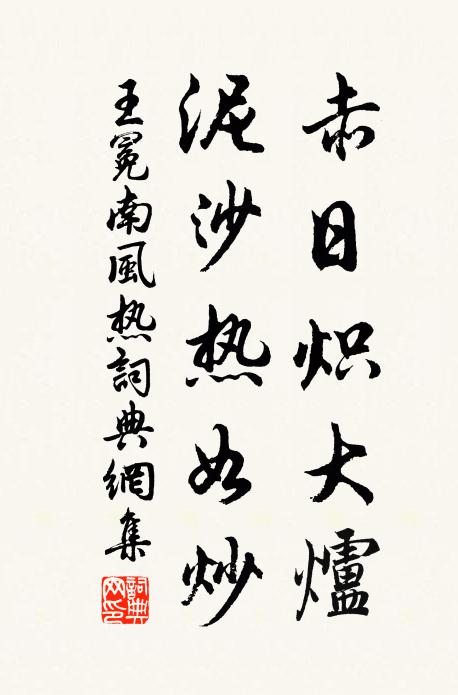 赤日炽大爐
泥沙热如炒
王冕南風热詞典網集
詞典网印